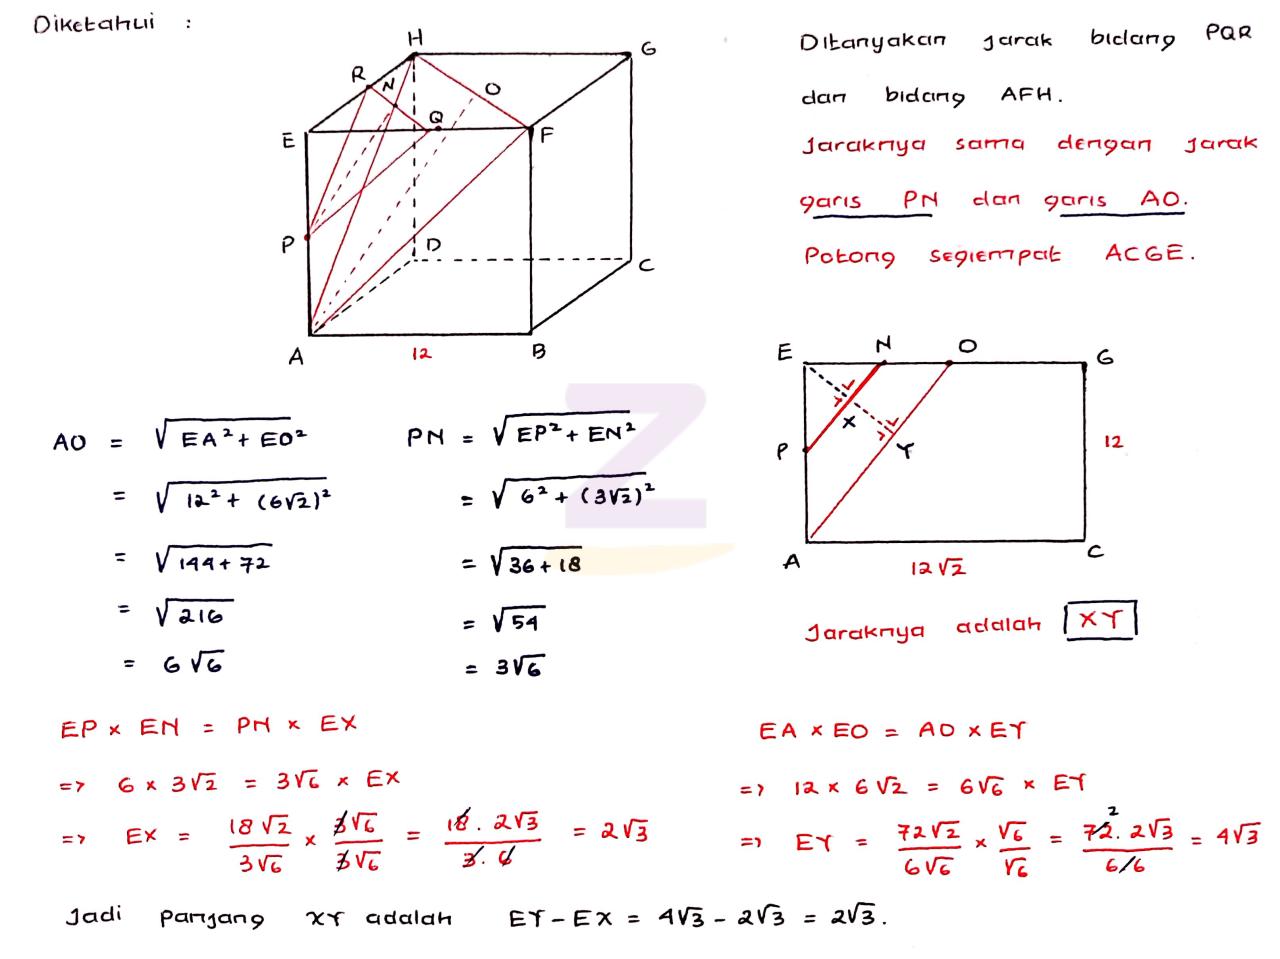 Diketahui :
H
G
R
N
O
Q
E
F
P
D
C
A
12
B
Ditanyakan jarak bidang PQR
dan bidang AFH.
Jaraknya sama dengan jarak
garis PN dan garis AO.
Potong segiempat ACGE.
E
N
O
G
X
Y
P
12
A
C
12√2
Jaraknya adalah XY
AO = √EA² + EO²
= √12² + (6√2)²
= √144 + 72
= √216
= 6√6
PN = √EP² + EN²
= √6² + (3√2)²
= √36 + 18
= √54
= 3√6
Z
EP × EN = PN × EX
=> 6 × 3√2 = 3√6 × EX
=> EX = 18√2/3√6 × 3√6/3√6 = 18 . 2√3/3 . 6 = 2√3
EA × EO = AO × EY
=> 12 × 6√2 = 6√6 × EY
=> EY = 72√2/6√6 × √6/√6 = 72 2 . 2√3/6/6 = 4√3
Jadi panjang XY adalah EY - EX = 4√3 - 2√3 = 2√3.